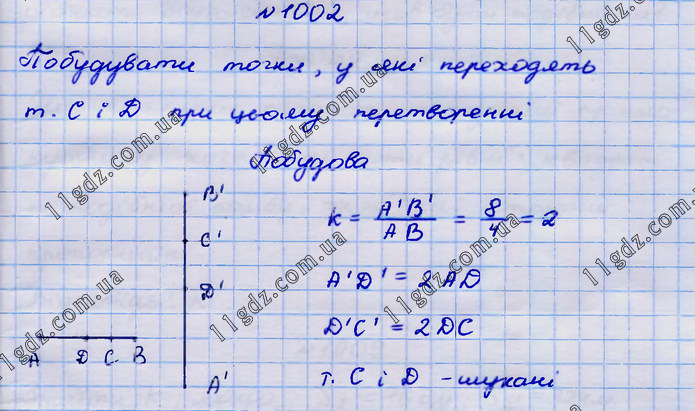 №1002
Побудувати точки, у які переходять
т. C і D при цьому перетворенні
Побудова
B'
C'
D'
A'
A D C B
k = A'B'/AB = 8/4 = 2
A'D' = 2AD
D'C' = 2DC
т. C і D - шукані
11gdz.com.ua
11gdz.com.ua
11gdz.com.ua
11gdz.com.ua
11gdz.com.ua
11gdz.com.ua
11gdz.com.ua